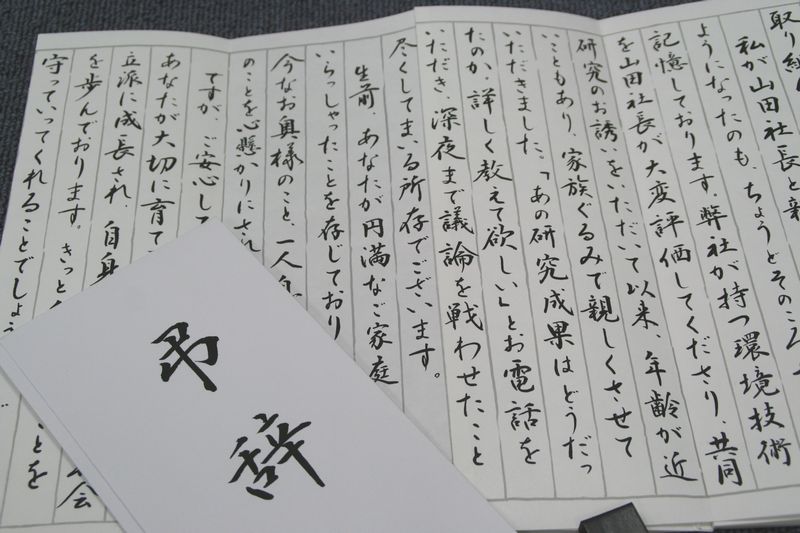 取り組
私が山田社長と親
ようになったのも、ちょうどそのころ
記憶しております。弊社が持つ環境技術
を山田社長が大変評価してくださり、共同
研究のお誘いをいただいて以来、年齢が近
いこともあり、家族ぐるみで親しくさせて
いただきました。「あの研究成果はどうだっ
たのか、詳しく教えて欲しい」とお電話を
いただき、深夜まで議論を戦わせたこと
尽くしてまいる所存でございます。
生前、あなたが円満なご家庭
いらっしゃったことを存じており
今なお奥様のこと、一人
のことを心懸かりにされ
ですが、ご安心して
あなたが大切に育て
立派に成長され、自身
を歩んでおります。きっと
守っていってくれることでしょう
会
ことを
弔辞